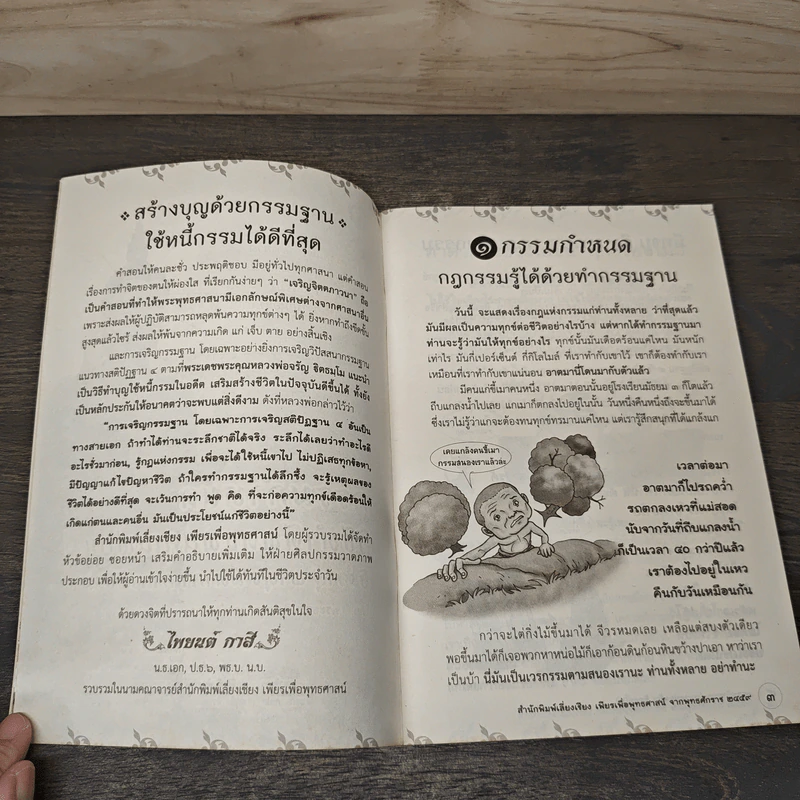 สร้างบุญด้วยกรรมฐาน
ใช้หนี้กรรมได้ดีที่สุด
คำสอนให้คนละชั่ว ประพฤติชอบ มีอยู่ทั่วไปทุกศาสนา แต่คำสอน
เรื่องการทำจิตของตนให้ผ่องใส ที่เรียกกันง่ายๆ ว่า "เจริญจิตตภาวนา" ถือ
เป็นคำสอนที่ทำให้พระพุทธศาสนามีเอกลักษณ์พิเศษต่างจากศาสนาอื่น
เพราะส่งผลให้ผู้ปฏิบัติสามารถหลุดพ้นความทุกข์ต่างๆ ได้ ยิ่งหากทำถึงขีดขั้น
สูงสุดแล้วไซร้ ส่งผลให้พ้นจากความเกิด แก่ เจ็บ ตาย อย่างสิ้นเชิง
และการเจริญกรรมฐาน โดยเฉพาะอย่างยิ่งการเจริญวิปัสสนากรรมฐาน
แนวทางสติปัฏฐาน ๔ ตามที่พระเดชพระคุณหลวงพ่อจรัญ ฐิตธมฺโม แนะนำ
เป็นวิธีทำบุญใช้หนี้กรรมในอดีต เสริมสร้างชีวิตในปัจจุบันดีขึ้นได้ ทั้งยัง
เป็นหลักประกันให้อนาคตว่าจะพบแต่สิ่งดีงาม ดังที่หลวงพ่อกล่าวไว้ว่า
"การเจริญกรรมฐาน โดยเฉพาะการเจริญสติปัฏฐาน ๔ อันเป็น
ทางสายเอก ถ้าทำได้ท่านจะระลึกชาติได้จริง ระลึกได้เลยว่าทำอะไรดี
อะไรชั่วมาก่อน, รู้กฎแห่งกรรม เพื่อจะได้ใช้หนี้เขาไป ไม่ปฏิเสธทุกข้อหา,
มีปัญญาแก้ไขปัญหาชีวิต ถ้าใครทำกรรมฐานได้ลึกซึ้ง จะรู้เหตุผลของ
ชีวิตได้อย่างดีที่สุด จะเว้นการทำ พูด คิด ที่จะก่อความทุกข์เดือดร้อนให้
เกิดแก่ตนและคนอื่น มันเป็นประโยชน์แก่ชีวิตอย่างนี้"
สำนักพิมพ์เลี่ยงเชียง เพียรเพื่อพุทธศาสน์ โดยผู้รวบรวมได้จัดทำ
หัวข้อย่อย ซอยหน้า เสริมคำอธิบายเพิ่มเติม ให้ฝ่ายศิลปกรรมวาดภาพ
ประกอบ เพื่อให้ผู้อ่านเข้าใจง่ายขึ้น นำไปใช้ได้ทันทีในชีวิตประจำวัน
ด้วยดวงจิตที่ปรารถนาให้ทุกท่านเกิดสันติสุขในใจ
ไพยนต์ กาสี
น.ธ.เอก, ป.ธ.๖, พธ.บ. น.บ.
รวบรวมในนามคณาจารย์สำนักพิมพ์เลี่ยงเชียง เพียรเพื่อพุทธศาสน์
๑ กรรมกำหนด
กฎกรรมรู้ได้ด้วยทำกรรมฐาน
วันนี้ จะแสดงเรื่องกฎแห่งกรรมแก่ท่านทั้งหลาย ว่าที่สุดแล้ว
มันมีผลเป็นความทุกข์ต่อชีวิตอย่างไรบ้าง แต่หากได้ทำกรรมฐานมา
ท่านจะรู้ว่ามันให้ทุกข์อย่างไร ทุกข์นั้นมันเดือดร้อนแค่ไหน มันหนัก
เท่าไร มันกี่เปอร์เซ็นต์ กี่กิโลไมล์ ที่เราทำกับเขาไว้ เขาก็ต้องทำกับเรา
เหมือนที่เราทำกับเขาแน่นอน อาตมานี้โดนมากับตัวแล้ว
มีคนแก่ขี้เมาคนหนึ่ง อาตมาตอนนั้นอยู่โรงเรียนมัธยม ๓ ก็โดแล้ว
ถีบแกลงน้ำไปเลย แกเมาก็ตกลงไปอยู่ในนั้น วันหนึ่งคืนหนึ่งถึงจะขึ้นมาได้
ซึ่งเราไม่รู้ว่าแกจะต้องทนทุกข์ทรมานแค่ไหน แต่เรารู้สึกสนุกที่ได้แกล้งแก
เคยแกล้งคนขี้เมา
กรรมสนองเราแล้วล่ะ
เวลาต่อมา
อาตมาก็ไปรถคว่ำ
รถตกลงเหวที่แม่สอด
นับจากวันที่ถีบแกลงน้ำ
ก็เป็นเวลา ๔๐ กว่าปีแล้ว
เราต้องไปอยู่ในเหว
คืนกับวันเหมือนกัน
กว่าจะไต่กิ่งไม้ขึ้นมาได้ จีวรหมดเลย เหลือแต่สบงตัวเดียว
พอขึ้นมาได้ก็เจอพวกหาหน่อไม้ก็เอาก้อนดินก้อนหินขว้างปาเอา หาว่าเรา
เป็นบ้า นี่มันเป็นเวรกรรมตามสนองเรานะ ท่านทั้งหลาย อย่าทำนะ
สำนักพิมพ์เลี่ยงเชียง เพียรเพื่อพุทธศาสน์ จากพุทธศักราช ๒๔๕๙ ๓